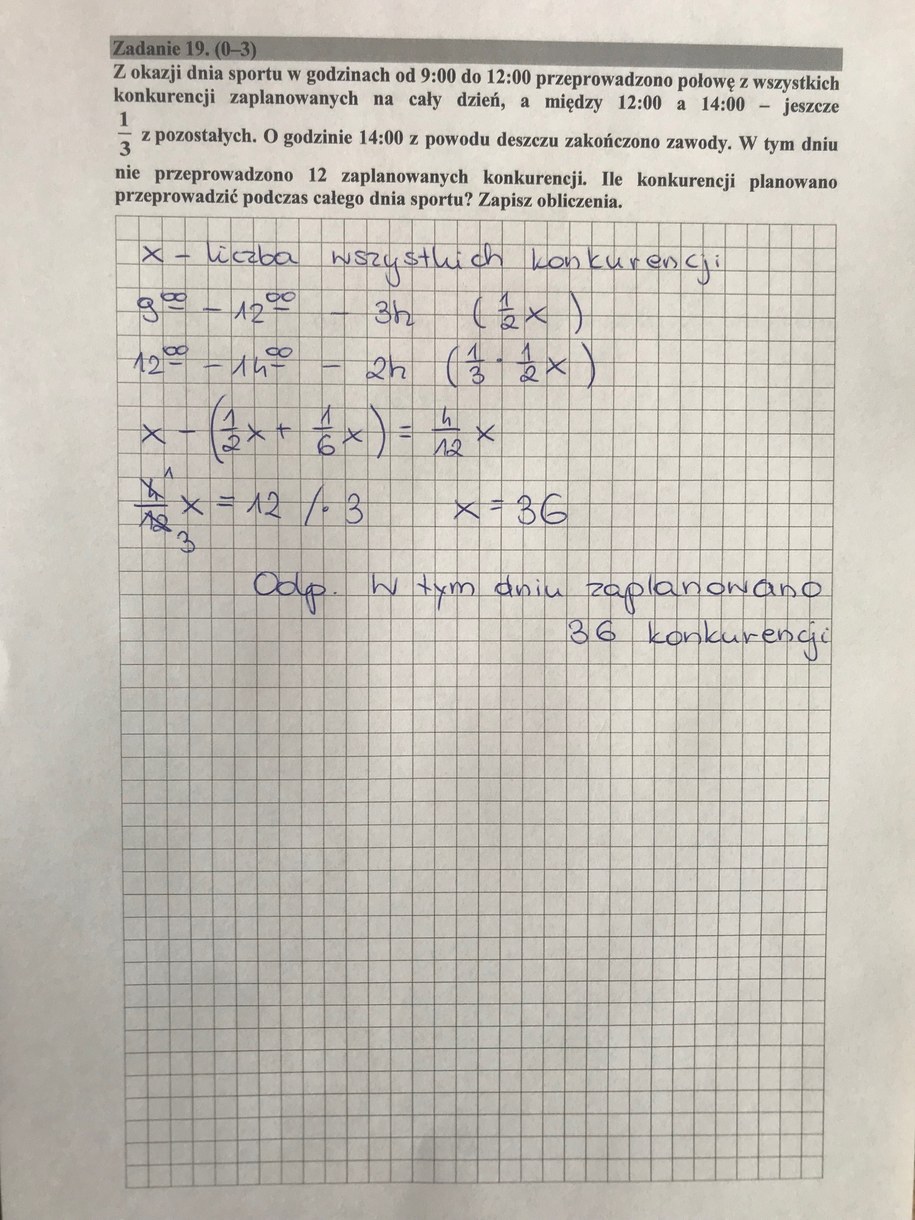 Zadanie 19. (0–3)
Z okazji dnia sportu w godzinach od 9:00 do 12:00 przeprowadzono połowę z wszystkich
konkurencji zaplanowanych na cały dzień, a między 12:00 a 14:00 – jeszcze
1/3 z pozostałych. O godzinie 14:00 z powodu deszczu zakończono zawody. W tym dniu
nie przeprowadzono 12 zaplanowanych konkurencji. Ile konkurencji planowano
przeprowadzić podczas całego dnia sportu? Zapisz obliczenia.
x – liczba wszystkich konkurencji
9⁰⁰ – 12⁰⁰ – 3h (1/2 x)
12⁰⁰ – 14⁰⁰ – 2h (1/3 · 1/2 x)
x – (1/2 x + 1/6 x) = 4/12 x
4/12 1/3 x = 12 /· 3 x = 36
Odp. W tym dniu zaplanowano
36 konkurencji